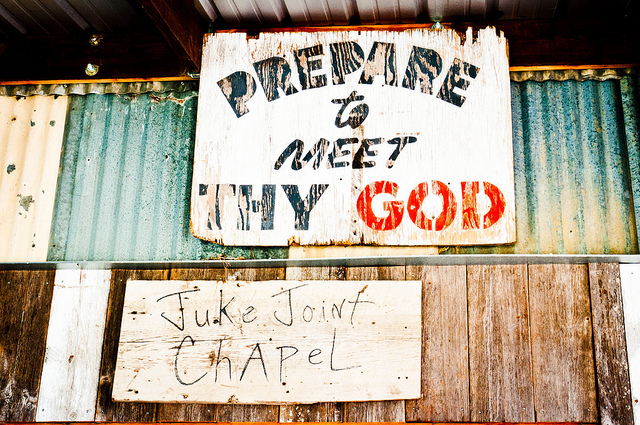 PREPARE
to
MEET
THY GOD
Juke Joint
ChAPeL